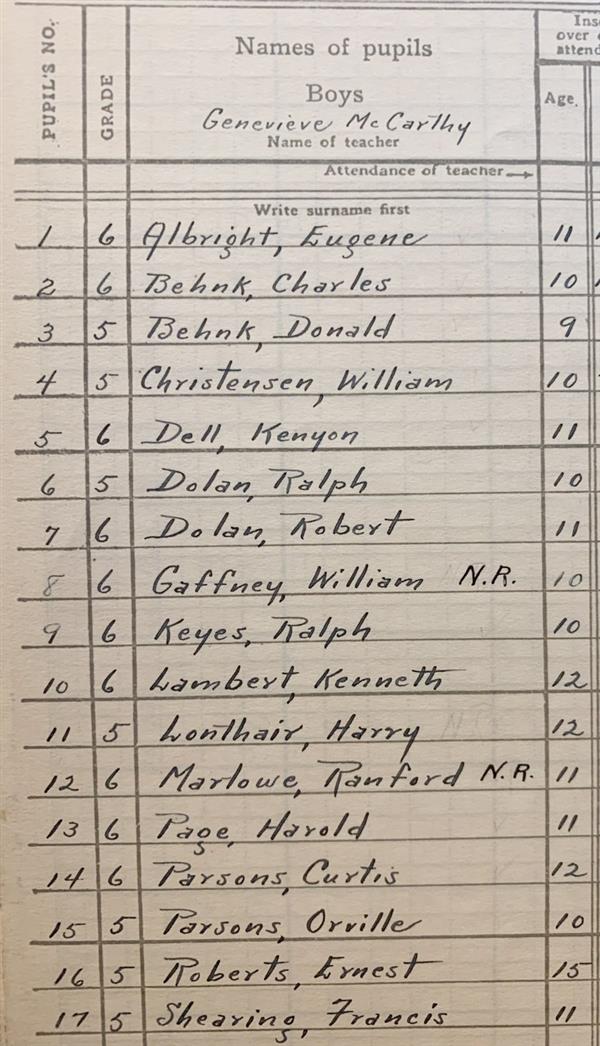 PUPIL'S NO.
GRADE
Names of pupils
Boys
Genevieve McCarthy
Name of teacher
Attendance of teacher
Write surname first
Age.
over
attend
1 6 Albright, Eugene 11
2 6 Behnk, Charles 10
3 5 Behnk, Donald 9
4 5 Christensen, William 10
5 6 Dell, Kenyon 11
6 5 Dolan, Ralph 10
7 6 Dolan, Robert 11
8 6 Gaffney, William N.R. 10
9 6 Keyes, Ralph 10
10 6 Lambert, Kenneth 12
11 5 Lonthair, Harry 12
12 6 Marlowe, Ranford N.R. 11
13 6 Page, Harold 11
14 6 Parsons, Curtis 12
15 5 Parsons, Orville 10
16 5 Roberts, Ernest 15
17 5 Shearing, Francis 11